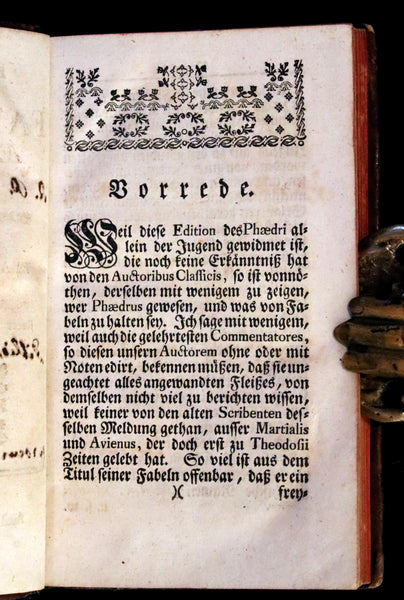 Vorrede.
Weil diese Edition des Phædri al-
lein der Jugend gewidmet ist,
die noch keine Erkänntniß hat
von den Auctoribus Classicis, so ist vonnö-
then, derselben mit wenigem zu zeigen,
wer Phædrus gewesen, und was von Fa-
beln zu halten sey. Ich sage mit wenigem,
weil auch die gelehrtesten Commentatores,
so diesen unsern Auctorem ohne oder mit
Noten edirt, bekennen müßen, daß sie un-
geachtet alles angewandten Fleißes, von
demselben nicht viel zu berichten wissen,
weil keiner von den alten Scribenten des-
selben Meldung gethan, ausser Martialis
und Avienus, der doch erst zu Theodosii
Zeiten gelebt hat. So viel ist aus dem
Titul seiner Fabeln offenbar, daß er ein
)( frey-